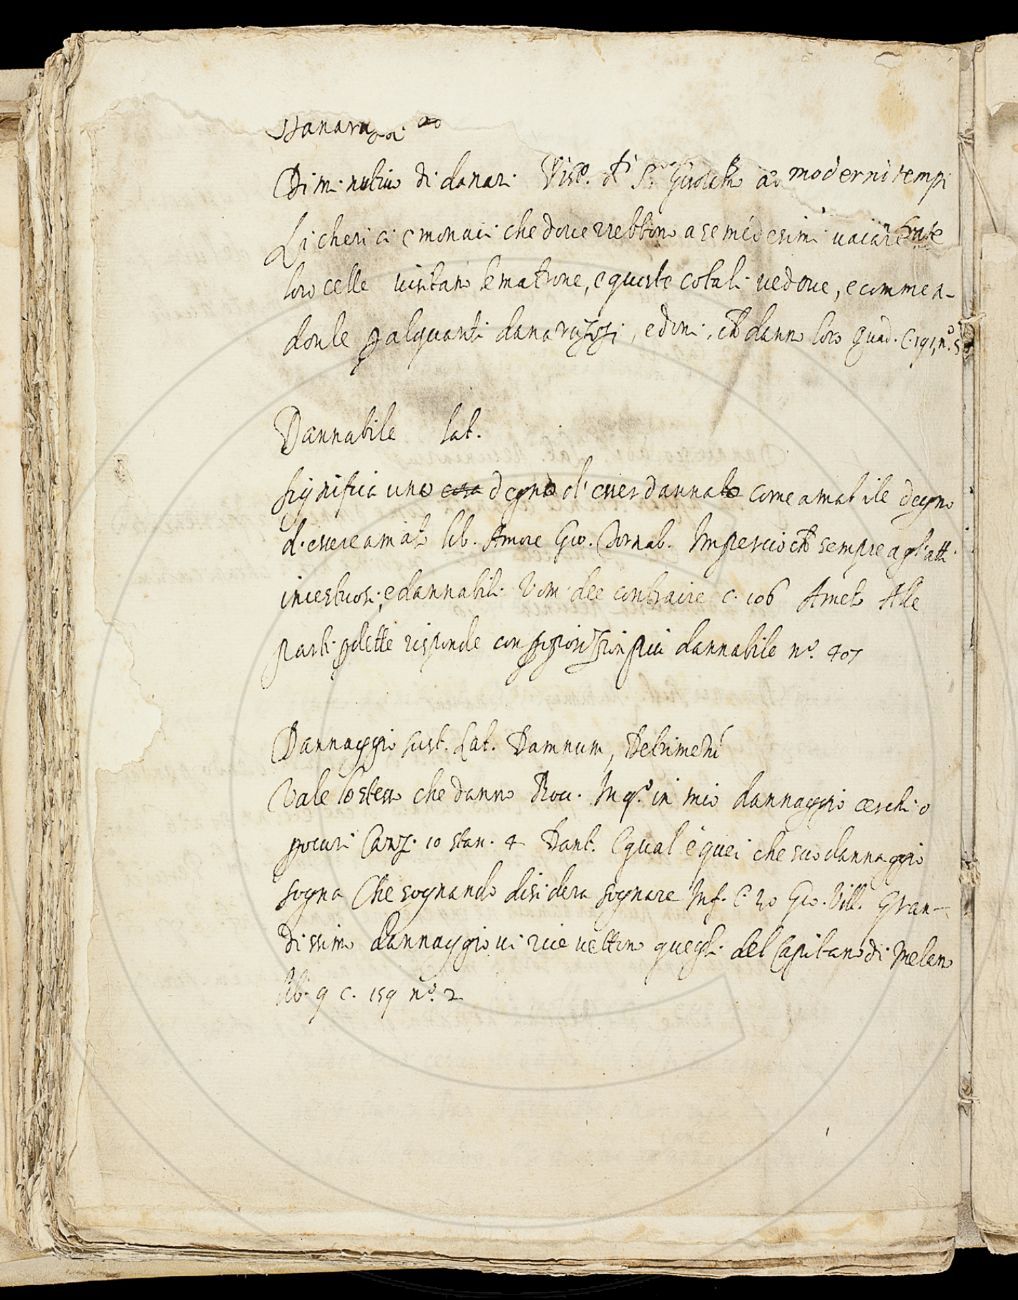 Danaruzzi
Diminutiuo di danari Vis. di S. ai moderni tempi
Li cherici e monaci che douerrebbino a se medesimi uacare
loro celle uisitano le matrone, e queste cotali uedoue, e commen-
donle p alquanti danaruzzi, e doni, ch danno loro Quad. C. 191, n.º 5
Dannabile lat.
significa uno cosa degno di esser dannato come amabile degno
d'essere amato lib. Amore Gio. Impercioch sempre agl'atti
incestuosi, e dannabili Uom dee contraire c. 106 Amet Alle
parti risponde più dannabile nº. 407
Dannaggio sust. Lat. Damnum, Detrimentū
Vale lo stesso che danno in mio dannaggio
procuri Canz. 10 stan. 4 Dant. E qual è quei che suo dannaggio
sogna Che sognando disidera sognare Inf. C 30 Gio. Vill. Gran-
dissimo dannaggio ui riceuettino quegli del Capitano di Melano
lib. 9 c. 159 nº. 2